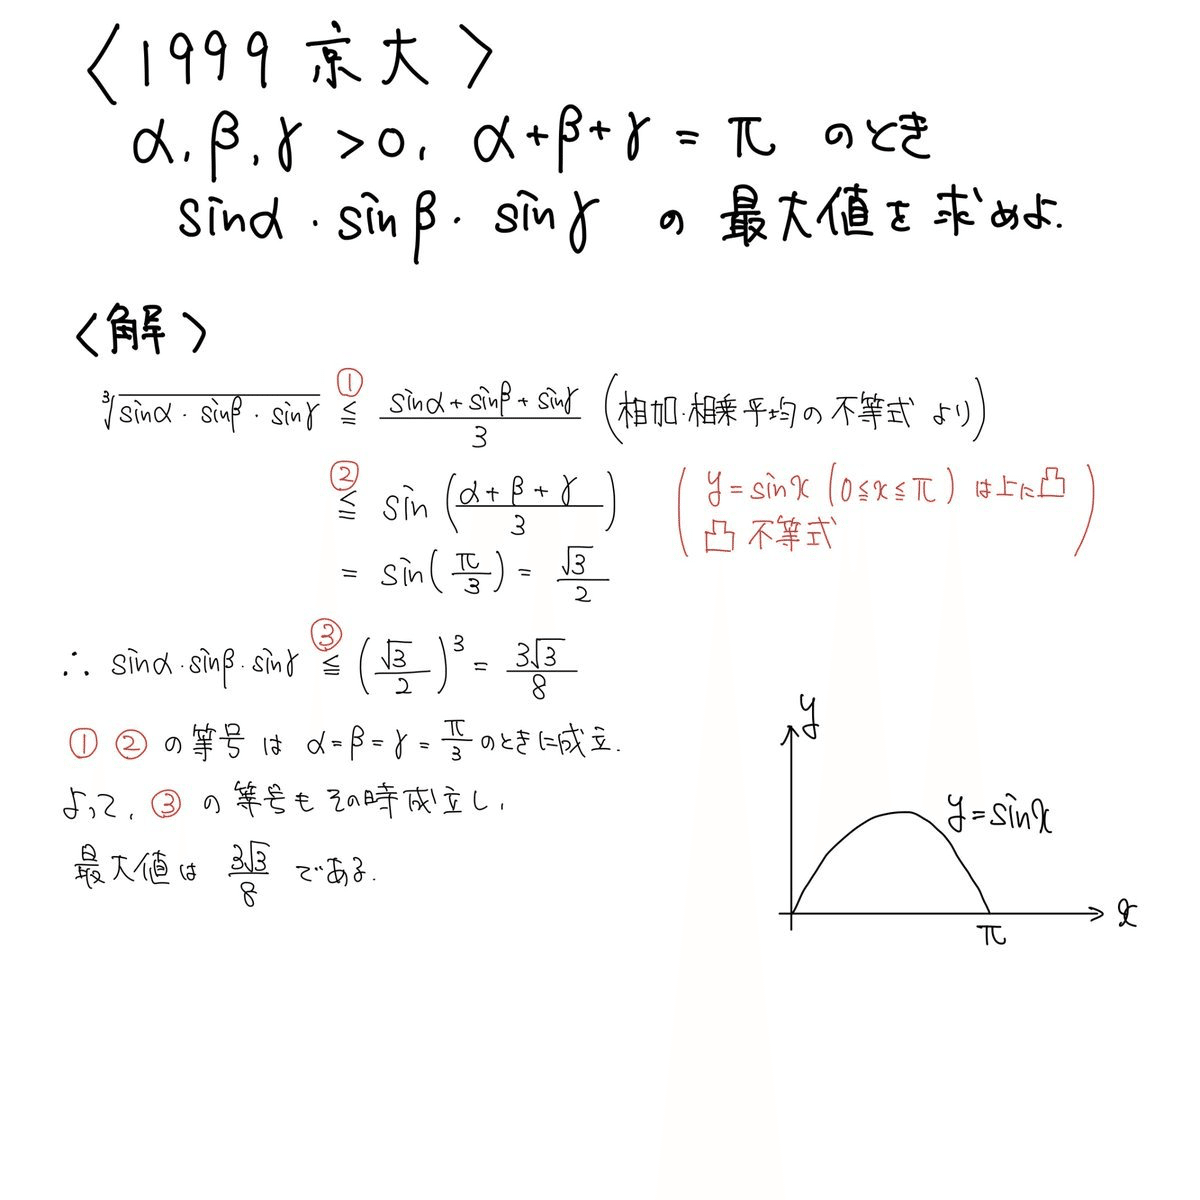 〈1999 京大〉
α, β, γ > 0, α+β+γ = π のとき
sinα・sinβ・sinγ の 最大値を求めよ.
〈解〉
∛(sinα・sinβ・sinγ) ①≦ (sinα+sinβ+sinγ)/3 (相加・相乗平均の不等式 より)
②≦ sin((α+β+γ)/3) (y=sinx (0≦x≦π) は上に凸
凸不等式)
= sin(π/3) = √3/2
∴ sinα・sinβ・sinγ ③≦ (√3/2)³ = 3√3/8
① ② の等号 は α=β=γ=π/3 のときに成立.
よって, ③ の 等号も その時 成立し,
最大値は 3√3/8 である.
y
y=sinx
x
π